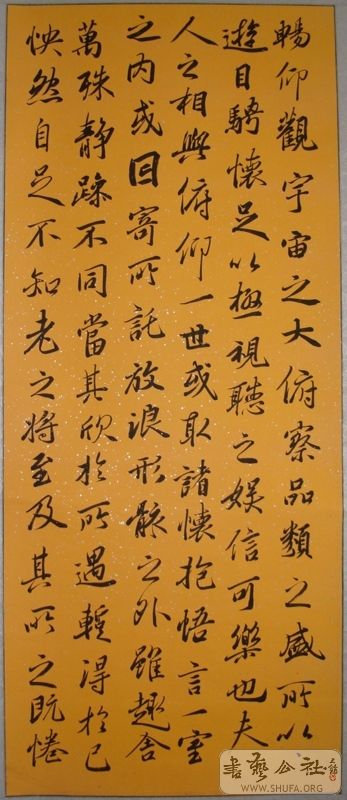 暢仰觀宇宙之大俯察品類之盛所以
遊目騁懷足以極視聽之娛信可樂也夫
人之相與俯仰一世或取諸懷抱悟言一室
之內或因寄所託放浪形骸之外雖趣舍
萬殊靜躁不同當其欣於所遇暫得於己
怏然自足不知老之將至及其所之既惓
書藝公社
WWW.SHUFA.ORG